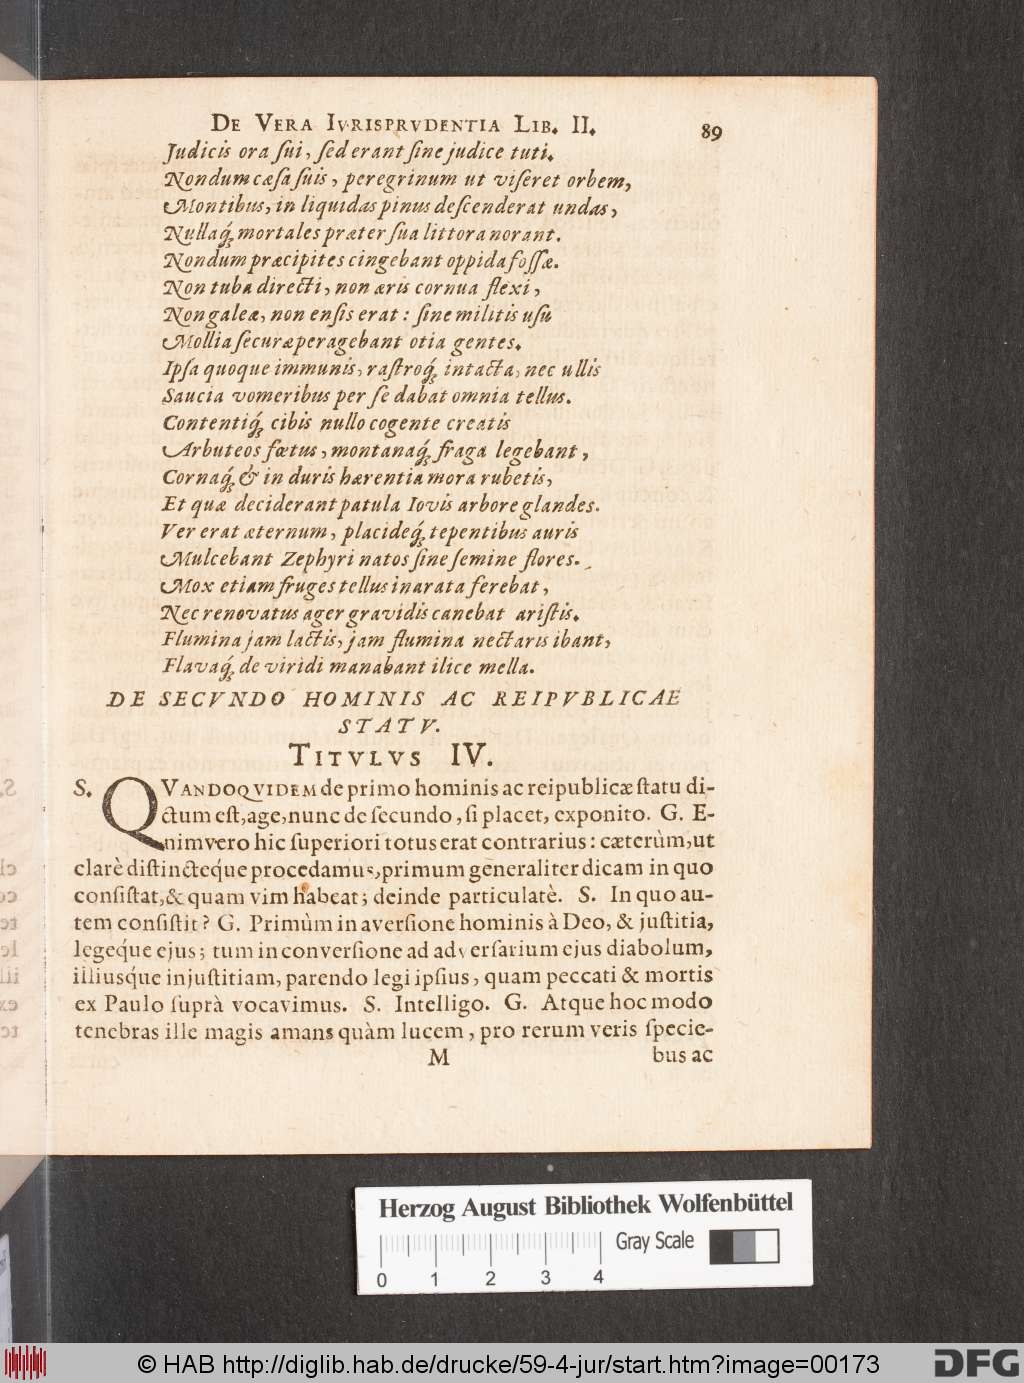 DE VERA IVRISPRVDENTIA LIB. II. 89
Judicis ora ſui, ſed erant ſine judice tuti.
Nondum cæſa ſuis, peregrinum ut viſeret orbem,
Montibus, in liquidas pinus deſcenderat undas,
Nullaq́ȝ mortales præter ſua littora norant.
Nondum præcipites cingebant oppida foſſæ.
Non tuba directi, non æris cornua flexi,
Non galeæ, non enſis erat : ſine militis uſu
Mollia ſecuræ peragebant otia gentes.
Ipſa quoque immunis, raſtroq́ȝ intacta, nec ullis
Saucia vomeribus per ſe dabat omnia tellus.
Contentiq́ȝ cibis nullo cogente creatis
Arbuteos fœtus, montanaq́ȝ fraga legebant,
Cornaq́ȝ & in duris hærentia mora rubetis,
Et quæ deciderant patula Iovis arbore glandes.
Ver erat æternum, placideq́ȝ tepentibus auris
Mulcebant Zephyri natos ſine ſemine flores.
Mox etiam fruges tellus inarata ferebat,
Nec renovatus ager gravidis canebat ariſtis.
Flumina jam lactis, jam flumina nectaris ibant,
Flavaq́ȝ de viridi manabant ilice mella.
DE SECVNDO HOMINIS AC REIPVBLICAE
STATV.
TITVLVS IV.
S. QVANDOQVIDEM de primo hominis ac reipublicæ ſtatu di-
ctum eſt, age, nunc de ſecundo, ſi placet, exponito. G. E-
nimvero hic ſuperiori totus erat contrarius : cæterùm, ut
clarè diſtincteq́ue procedamus, primum generaliter dicam in quo
conſiſtat, & quam vim habeat; deinde particulatè. S. In quo au-
tem conſiſtit? G. Primùm in averſione hominis à Deo, & juſtitia,
legeq́ue ejus; tum in converſione ad adverſarium ejus diabolum,
illiusq́ue injuſtitiam, parendo legi ipſius, quam peccati & mortis
ex Paulo ſuprà vocavimus. S. Intelligo. G. Atque hoc modo
tenebras ille magis amans quàm lucem, pro rerum veris ſpecie-
M bus ac
Herzog August Bibliothek Wolfenbüttel
Gray Scale
0 1 2 3 4
© HAB http://diglib.hab.de/drucke/59-4-jur/start.htm?image=00173
DFG